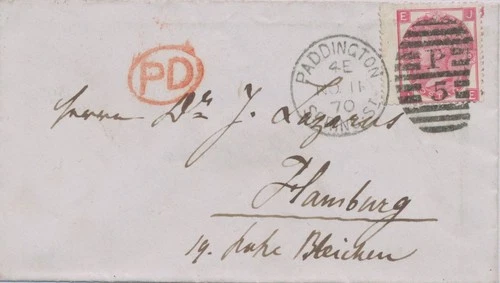 E J
PADDINGTON
4E
NO 11
70
SPRING ST.
P
5
E
PD
Herrn Dr. J. Lazarus
Hamburg
19. hohe Bleichen